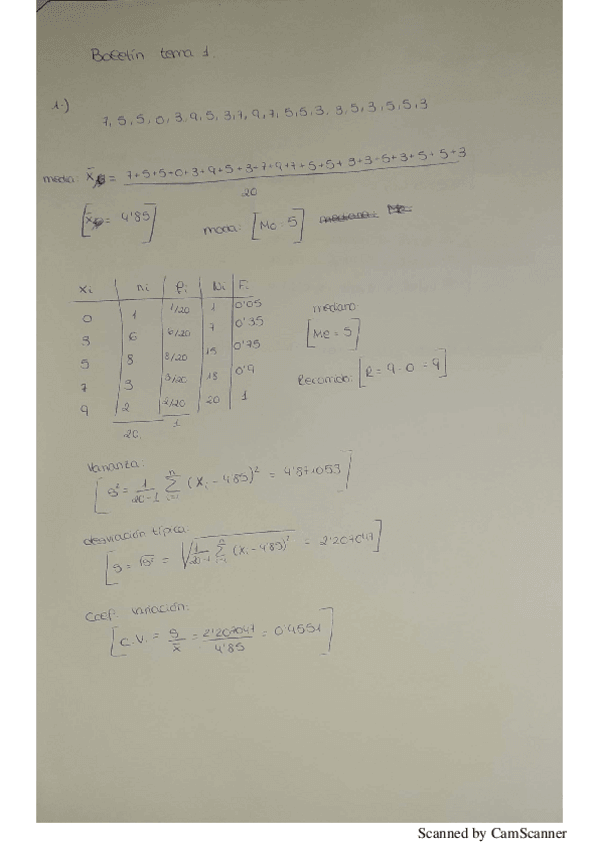 Boletín tema 1.
1.)
7, 5, 5, 0, 3, 9, 5, 3, 7, 9, 7, 5, 5, 3, 3, 5, 3, 5, 5, 3
media: x̄ = 7+5+5+0+3+9+5+3+7+9+7+5+5+3+3+5+3+5+5+3
20
[x̄ = 4'85] moda: [Mo = 5]
xi ni fi Ni Fi
0 1 1/20 1 0'05
3 6 6/20 7 0'35
5 8 8/20 15 0'75
7 3 3/20 18 0'9
9 2 2/20 20 1
20 1
mediana:
[Me = 5]
Recorrido: [R = 9 - 0 = 9]
Varianza:
[S² = 1/20-1 Σ (xi - 4'85)² = 4'871053]
desviación típica:
[S = √S² = √1/20-1 Σ (xi - 4'85)² = 2'207047]
Coef. variación:
[C.V. = S/x̄ = 2'207047/4'85 = 0'4551]
Scanned by CamScanner